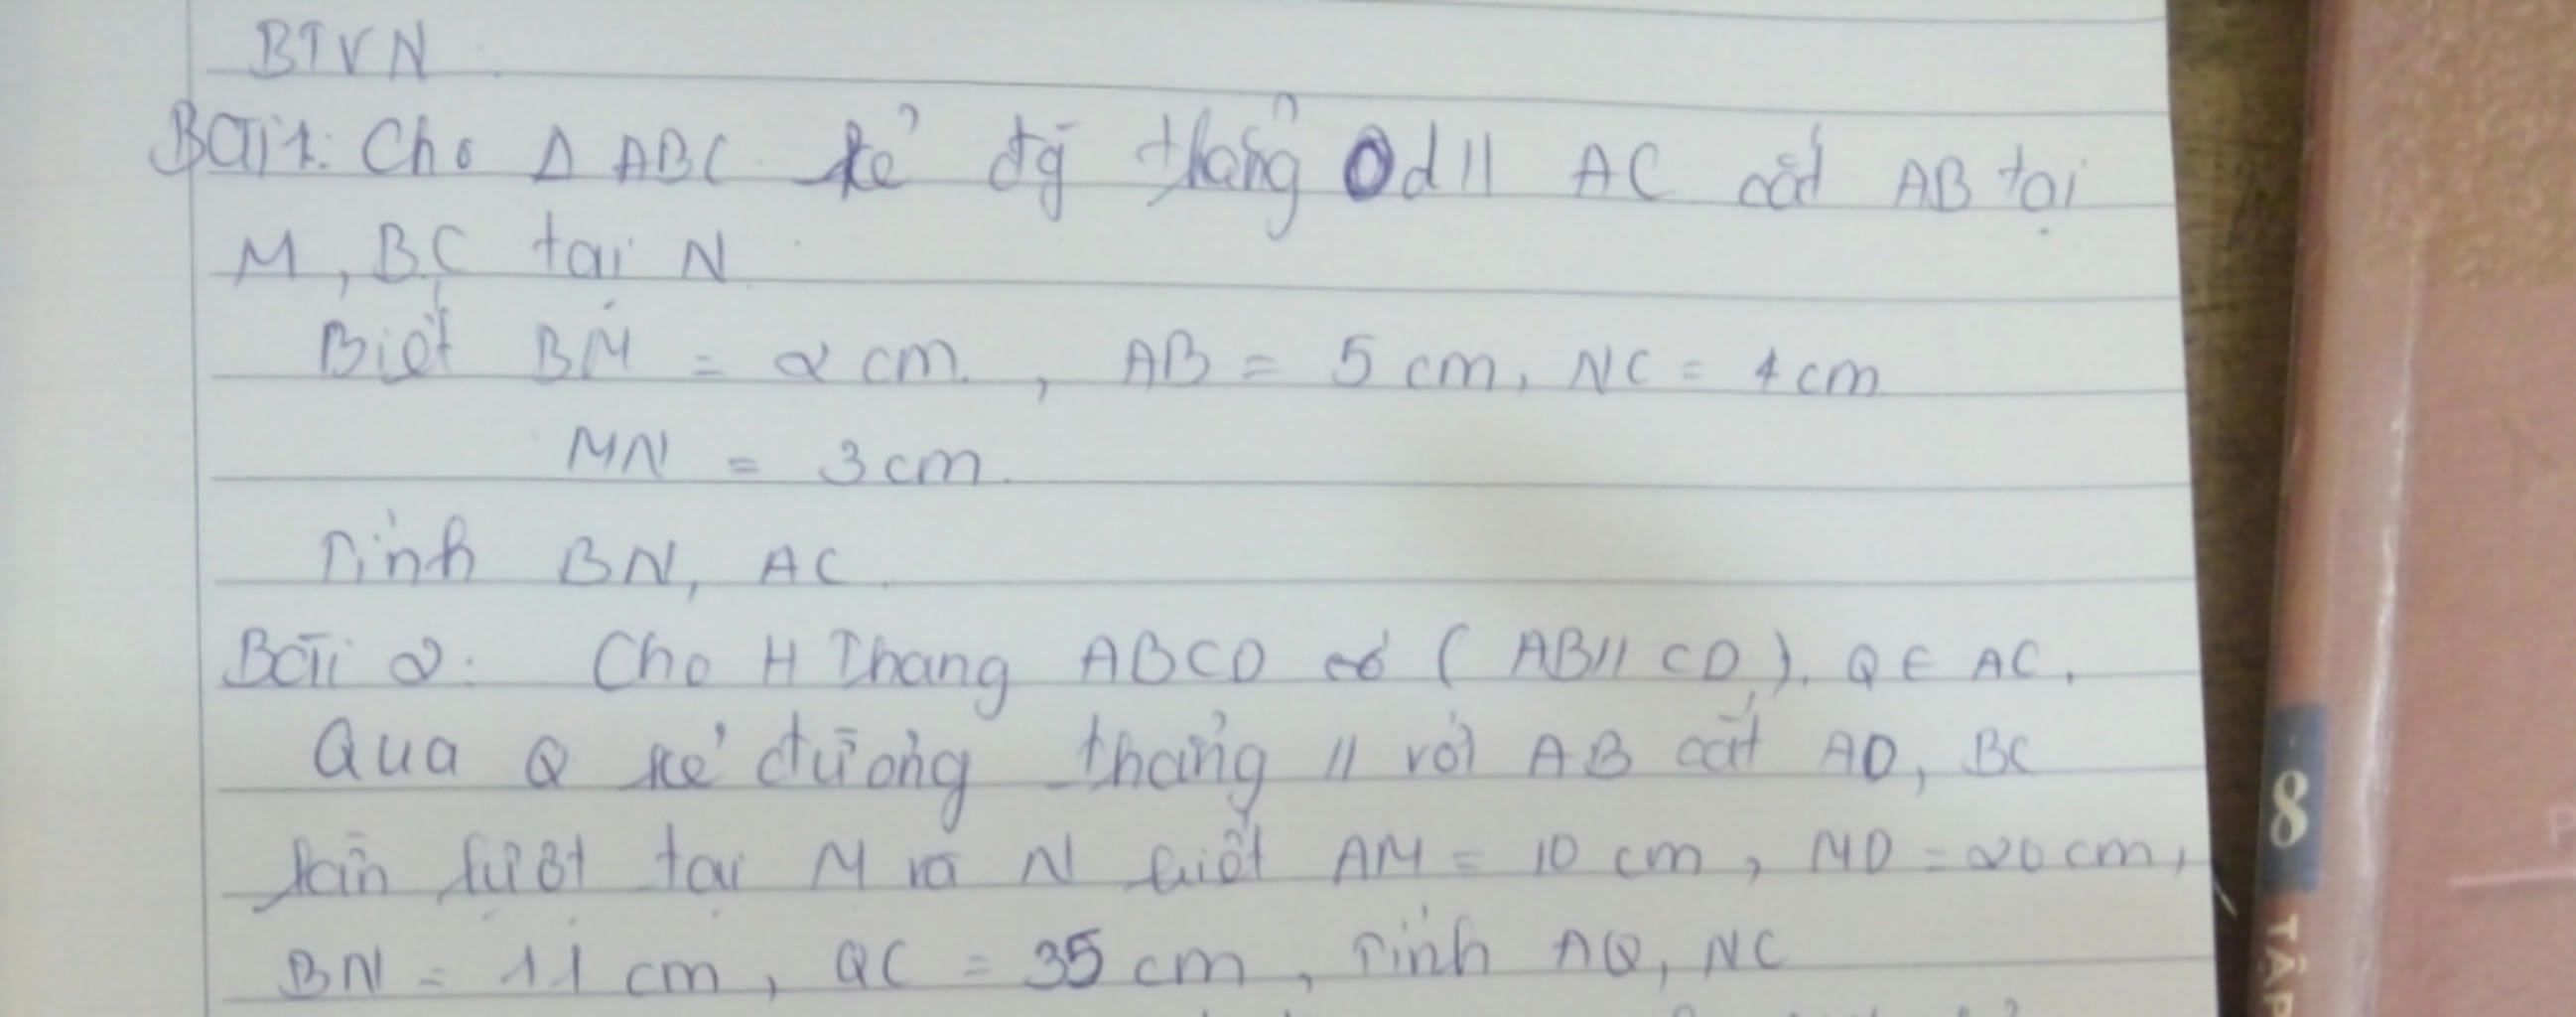 BTVN
Bài 1: Cho Δ ABC kẻ đg thẳng d // AC cắt AB tại
M, BC tại N
Biết BM = 2 cm, AB = 5 cm, NC = 1 cm
MN = 3 cm.
Tính BN, AC.
Bài 2: Cho H Thang ABCD có (AB // CD). Q ∈ AC.
Qua Q kẻ đường thẳng // với AB cắt AD, BC
lần lượt tại M và N biết AM = 10 cm, MD = 20 cm,
BN = 11 cm, QC = 35 cm, Tính AQ, NC
8
TẬP